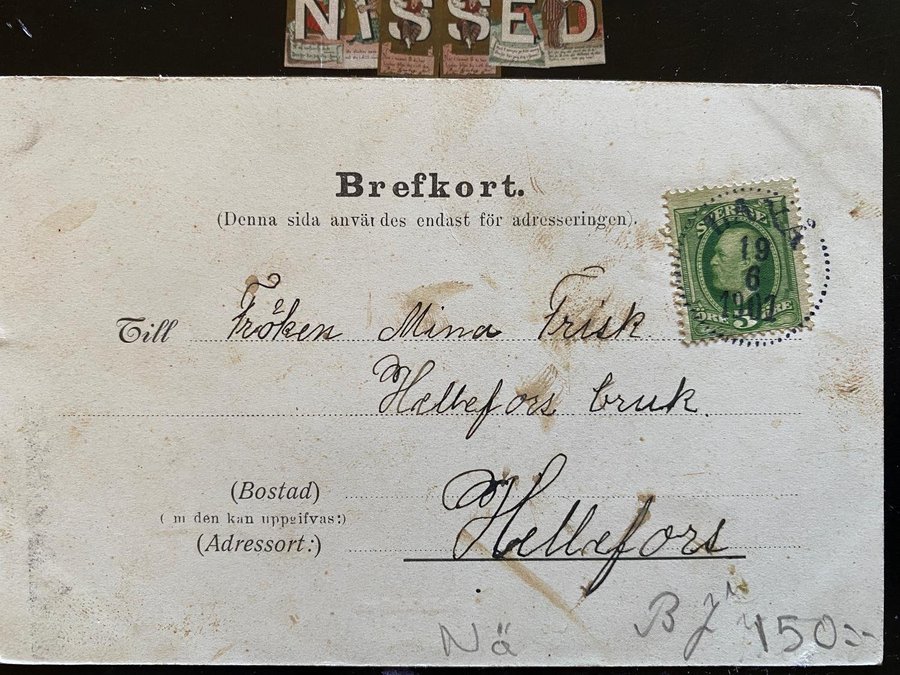 NISSED
Brefkort.
(Denna sida anvä des endast för adresseringen).
SVERIGE
19
6
1902
Till Fröken Mina Frisk
Hellefors bruk.
(Bostad)
( m den kan uppgifvas:)
(Adressort:)
Hellefors
Nä
150:-